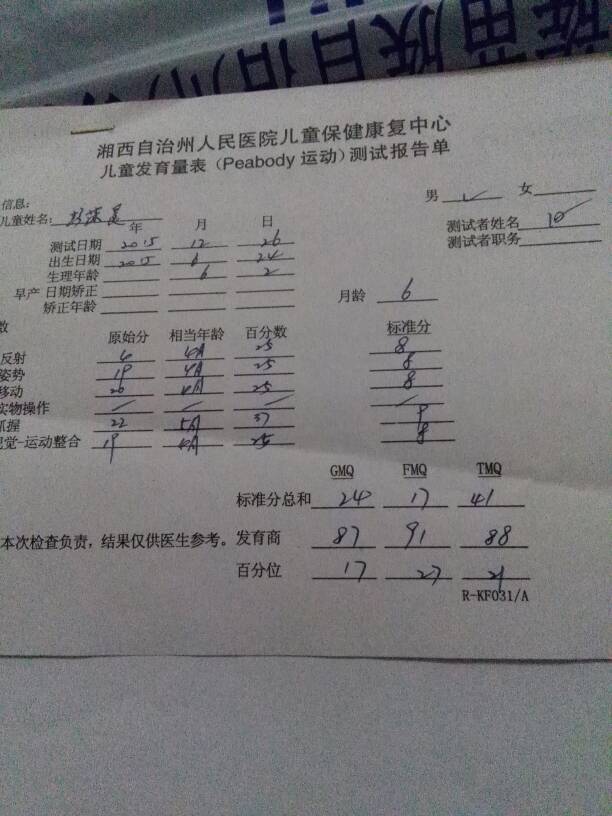 族自治州
湘西自治州人民医院儿童保健康复中心
儿童发育量表（Peabody 运动）测试报告单
信息:
男 ✓ 女
儿童姓名:
测试者姓名
年 月 日
测试者职务
测试日期 2015 12 26
出生日期 2015 6 24
生理年龄 6 2
早产 日期矫正
月龄 6
矫正年龄
数
原始分 相当年龄 百分数 标准分
反射 6 4月 25 8
姿势 19 4月 25 8
移动 20 4月 25 8
实物操作 / / / /
抓握 22 5月 37 9
觉-运动整合 19 4月 25 8
GMQ FMQ TMQ
标准分总和 24 17 41
本次检查负责，结果仅供医生参考。 发育商 87 91 88
百分位 17 27 21
R-KF031/A